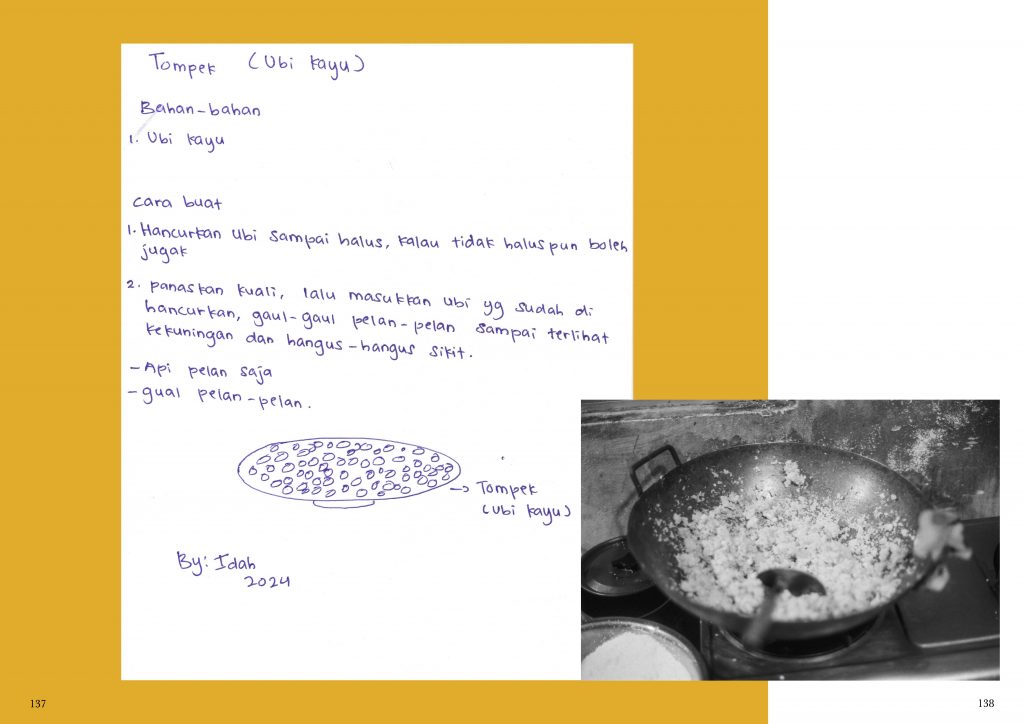 Tompek (Ubi Kayu)
Bahan-bahan
1. Ubi kayu
cara buat
1. Hancurkan Ubi sampai halus, kalau tidak haluspun boleh
jugak
2. panaskan kuali, lalu masukkan ubi yg sudah di
hancurkan, gaul-gaul pelan-pelan sampai terlihat
kekuningan dan hangus-hangus sikit.
- Api pelan saja
- gual pelan-pelan.
→ Tompek
(Ubi kayu)
By: Idah
2024
137
138